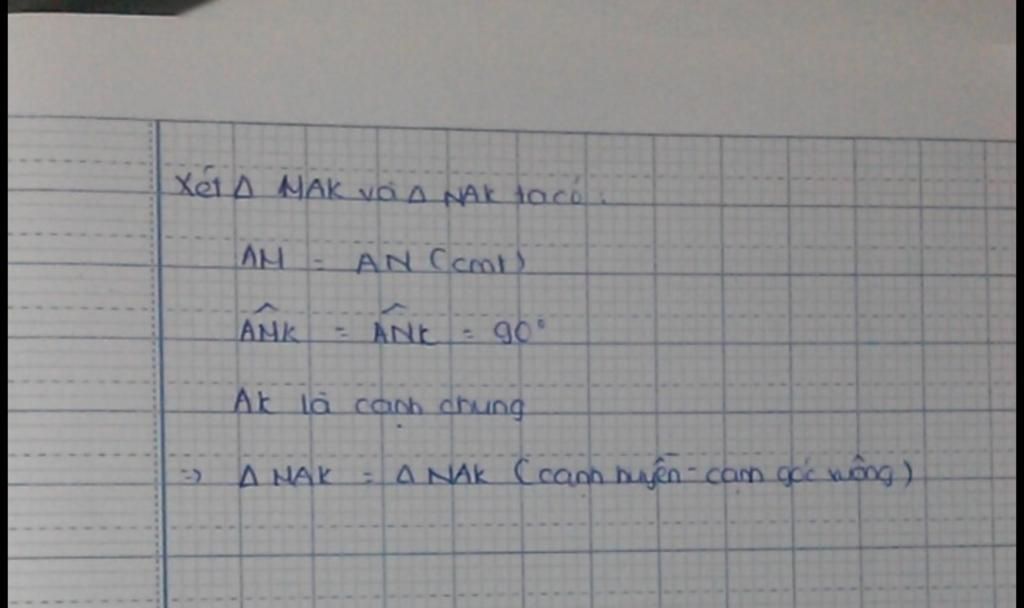 Xét Δ MAK và Δ NAK ta có:
AM = AN (cmt)
AMK = ANK = 90°
AK là cạnh chung
=> Δ MAK = Δ NAK (cạnh huyền - cạnh góc vuông)